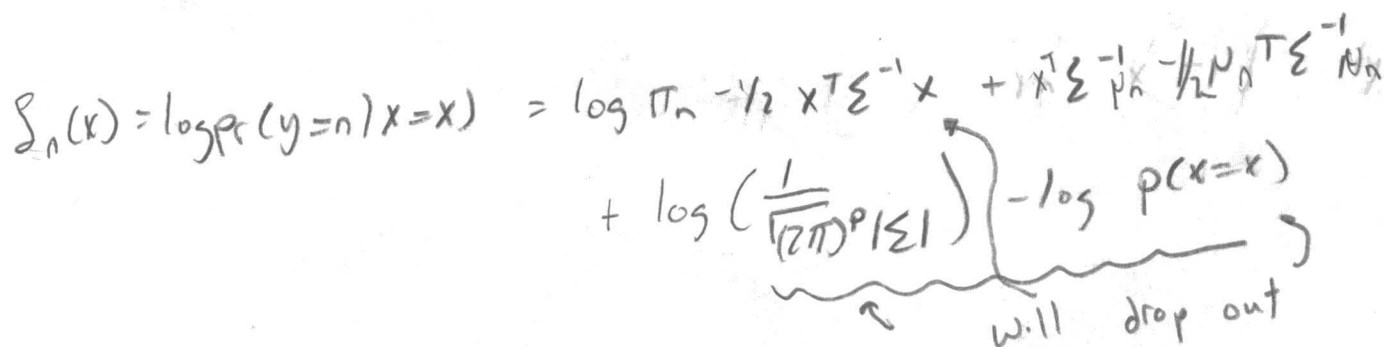 δₙ(x) = log pr(y=n|x=x) = log πₙ - 1/2 xᵀΣ⁻¹x + xᵀΣ⁻¹μₙ - 1/2 μₙᵀΣ⁻¹μₙ
+ log(1/√(2π)ᵖ|Σ|) - log p(x=x)
will drop out